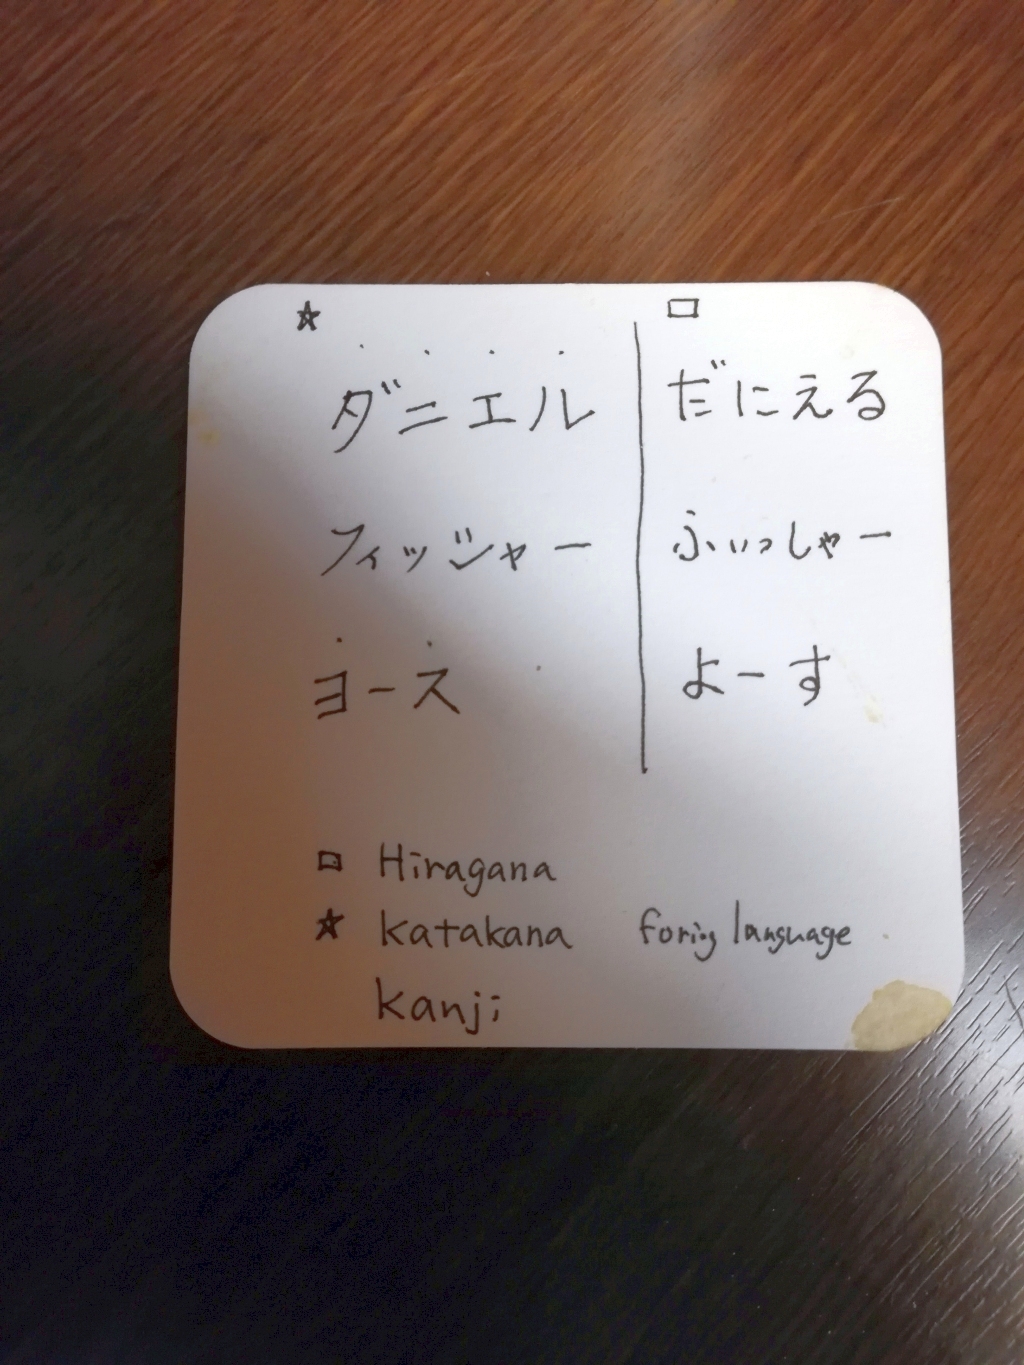 ☆ □
ダニエル だにえる
フィッシャー ふぃっしゃー
ヨース よーす
□ Hiragana
☆ Katakana forig language
Kanji